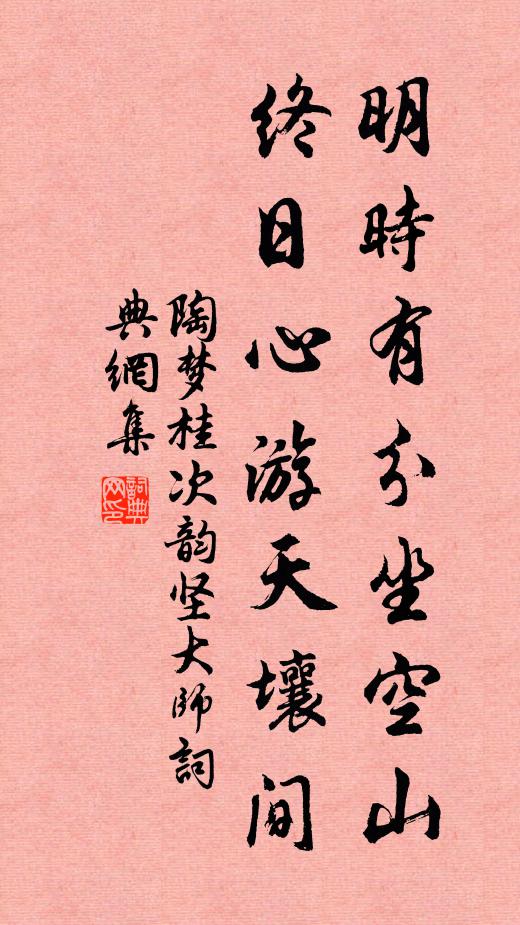 明時有分坐空山
終日心游天壤间
陶梦桂次韵坚大师詞
典網集
詞典网印